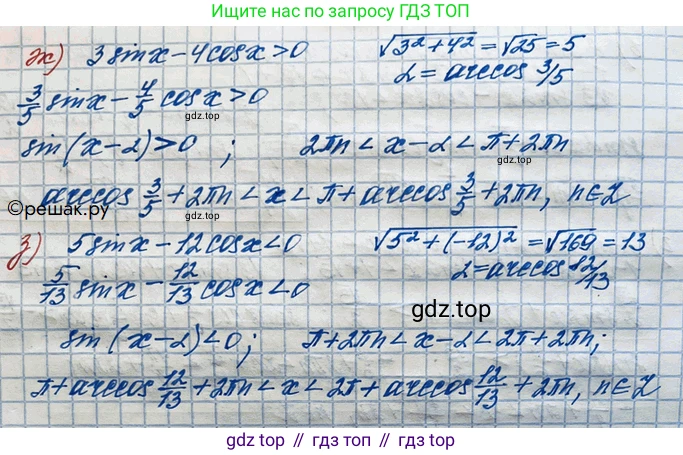 Ищите нас по запросу ГДЗ ТОП
ж) 3 sin x - 4 cos x > 0 √3² + 4² = √25 = 5
α = arccos 3/5
3/5 sin x - 4/5 cos x > 0
gdz.top
sin (x - α) > 0 ; 2πn < x - α < π + 2πn
gdz.top
arccos 3/5 + 2πn < x < π + arccos 3/5 + 2πn, n ∈ Z
©решак.ру
з) 5 sin x - 12 cos x < 0 √5² + (-12)² = √169 = 13
α = arccos 12/13
5/13 sin x - 12/13 cos x < 0
gdz.top
sin (x - α) < 0 ; π + 2πn < x - α < 2π + 2πn ;
π + arccos 12/13 + 2πn < x < 2π + arccos 12/13 + 2πn, n ∈ Z
gdz top // гдз топ // gdz.top // гдз.топ